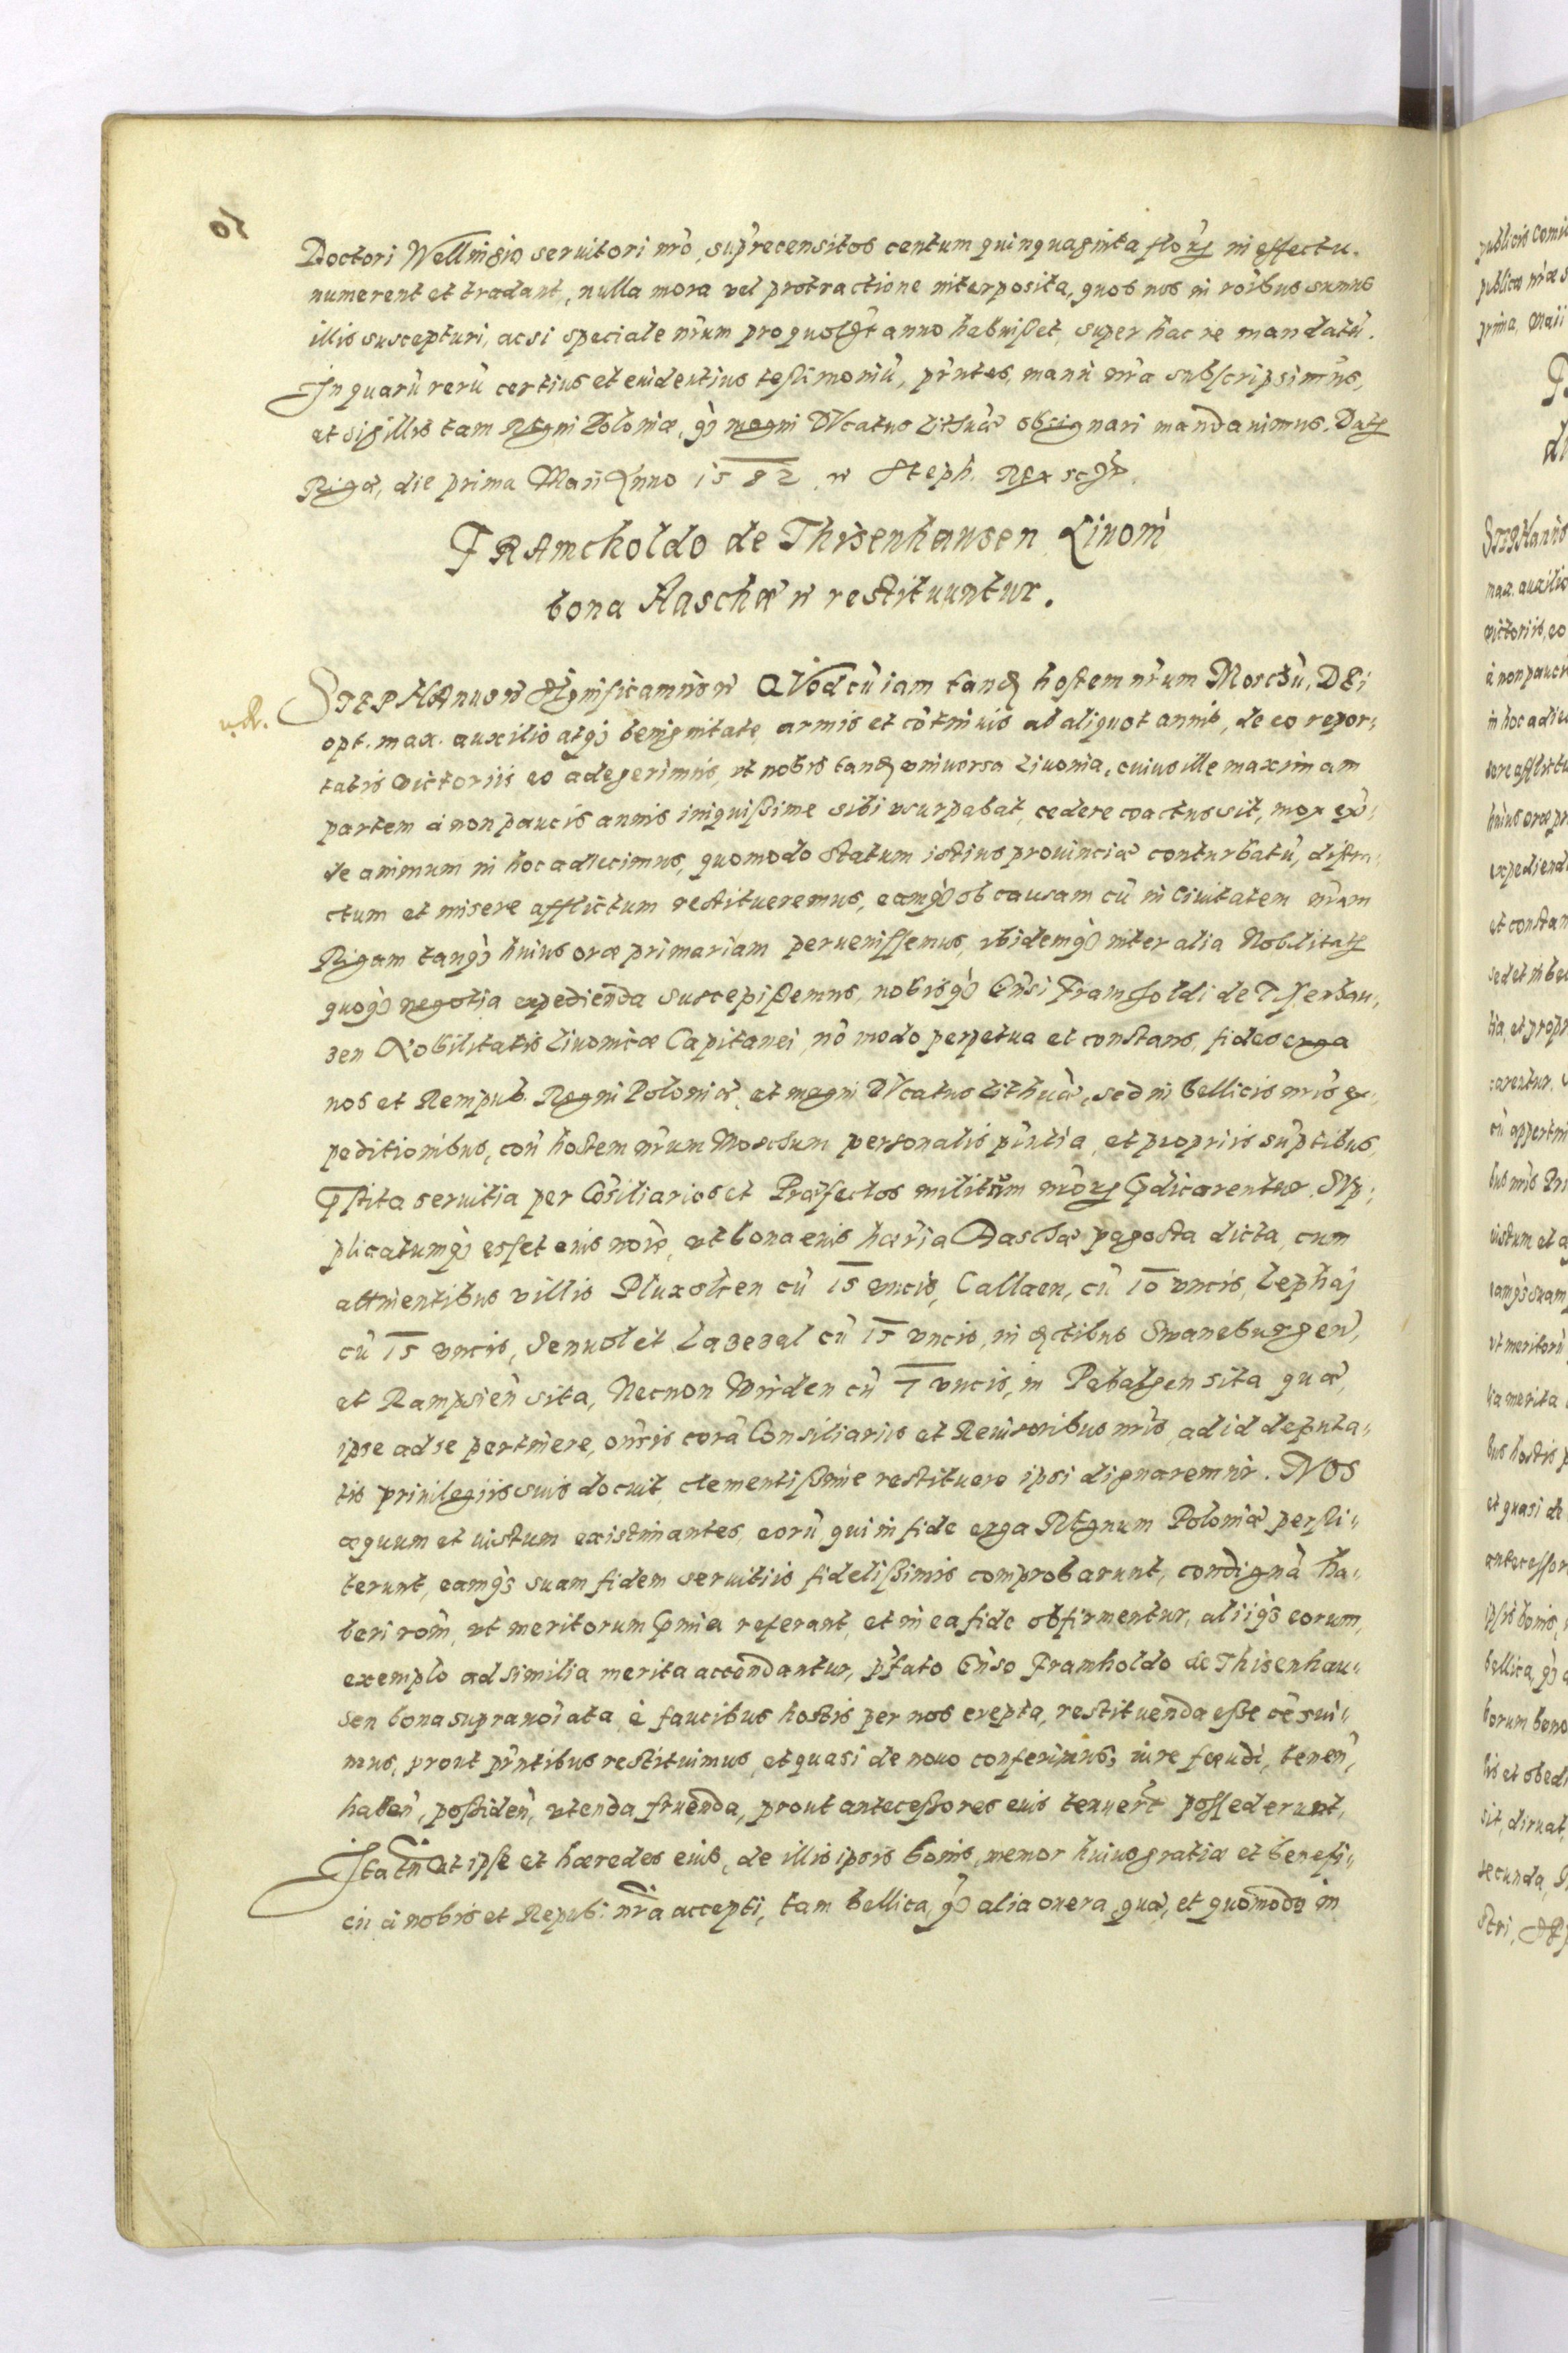 50
Doctori Wellingio seruitori nrõ, suprecensitos centum quinquaginta flor in effectu
numerent et tradant, nulla mora vel protractione interposita, quos nos in rõibus sumus
illis suscepturi, acsi speciale nrũm pro quolibet anno habuisset, super hac re mandatũ.
In quarũ rerũ certius et euidentius testimoniũ, pñtes manũ nrã subscripsimus,
et sigillis tam Regni Poloniæ, q̃ magni Ducatus Lithuã obsignari mandauimus. Dat
Rigæ, die prima Maii Anno 1582. Steph. Rex
FRAmcholdo de Thisenhausen Liuoni
bona Aaschæ restituuntur.
STEPHAnus Significamus QVod cũ iam tand hostem nrũm Moschũ, DEi
opt. max. auxilio atq̃ benignitate, armis et cõtinuis ab aliquot annis, de eo repor-
tatis victoriis eo adegerimus, vt nobis tand vniuersa Liuonia, cuius ille maximam
partem à non paucis annis iniquissime sibi vsurpabat, cedere coactus sit, mox exi-
de animum in hoc adiecimus, quomodo statum istius prouinciæ conturbatũ, distra-
ctum et misere afflictum restitueremus, eamq̃ ob causam cũ in Ciuitatem nrãm
Rigam tanq̃ huius oræ primariam peruenissemus, ibidemq̃ inter alia Nobilitat
quoq̃ negotia expedienda suscepissemus, nobisq̃ Gñsi Framholdi de Tisenhau-
zen Nobilitatis Liuonicæ Capitanei, nõ modo perpetua et constans fides erga
nos et Rempub. Regni Poloniæ, et magni Ducatus Lithuã, sed in bellicis nrĩs ex-
peditionibus, con hostem nrũm Moschum personalis pñtia, et propriis suptibus,
pstita seruitia per Cõsiliarios et Præfectos militum nrõr pdicarentur. Sup-
plicatumq̃ esset eius noĩe, vt bona eius hæria Aaschæ pagosta dicta, cum
attinentibus villis Pluxolten cũ 15 vncis, Callaen, cũ 10 vncis, Lephaj
cũ 15 vncis, Senuol et Lazezal cũ 15 vncis, in dctibus Swaneburgen,
et Rampsieñ sita, Necnon Wirden cũ 7 vncis, in Pebalgen sita quæ,
ipse ad se pertinere, coram Consiliariis et Reuisoribus nrĩs, ad id deputa-
tis priuilegiis suis docuit, clementissime restituere ipsi dignaremur. NOS
æquum et iustum existimantes, eorũ qui in fide erga REgnum Poloniæ persti-
terunt, eamq̃ suam fidem seruitiis fidelissimis comprobarunt, condignã ha-
beri rõm, vt meritorum pmia referant, et in ea fide obfirmentur, aliiq̃ eorum,
exemplo ad similia merita accendantur, pfato Gñso Framholdo de Thisenhau-
sen bona supranoĩata, è faucibus hostis per nos erepta, restituenda esse cẽsui-
mus, prout pñtibus restituimus, et quasi de nouo conferimus, iure fæudi, teneñ,
habeñ, possideñ, vtenda fruenda, prout antecessores eius tenuert possederunt,
Ita tñ vt ipse et hæredes eius, de illis ipsis bonis, memor huius gratiæ et benefi-
cii à nobis et Repub: nrã accepti, tam bellica, q̃ alia onera, quæ, et quomodo in